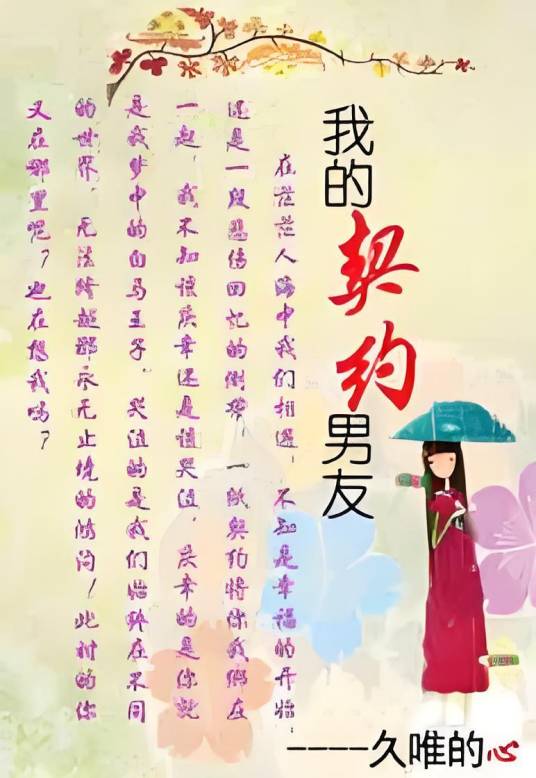 我的契约男友
在茫茫人海中我们相遇，不知是幸福的开始，
还是一段悲伤回忆的倒带，一纸契约将你我绑在
一起，我不知该庆幸还是该哭泣，庆幸的是你就
是我梦中的白马王子。哭泣的是我们始终在不同
的世界，无法跨越那永无止境的鸿沟！此时的你
又在哪里呢？也在想我吗？
----久唯的心